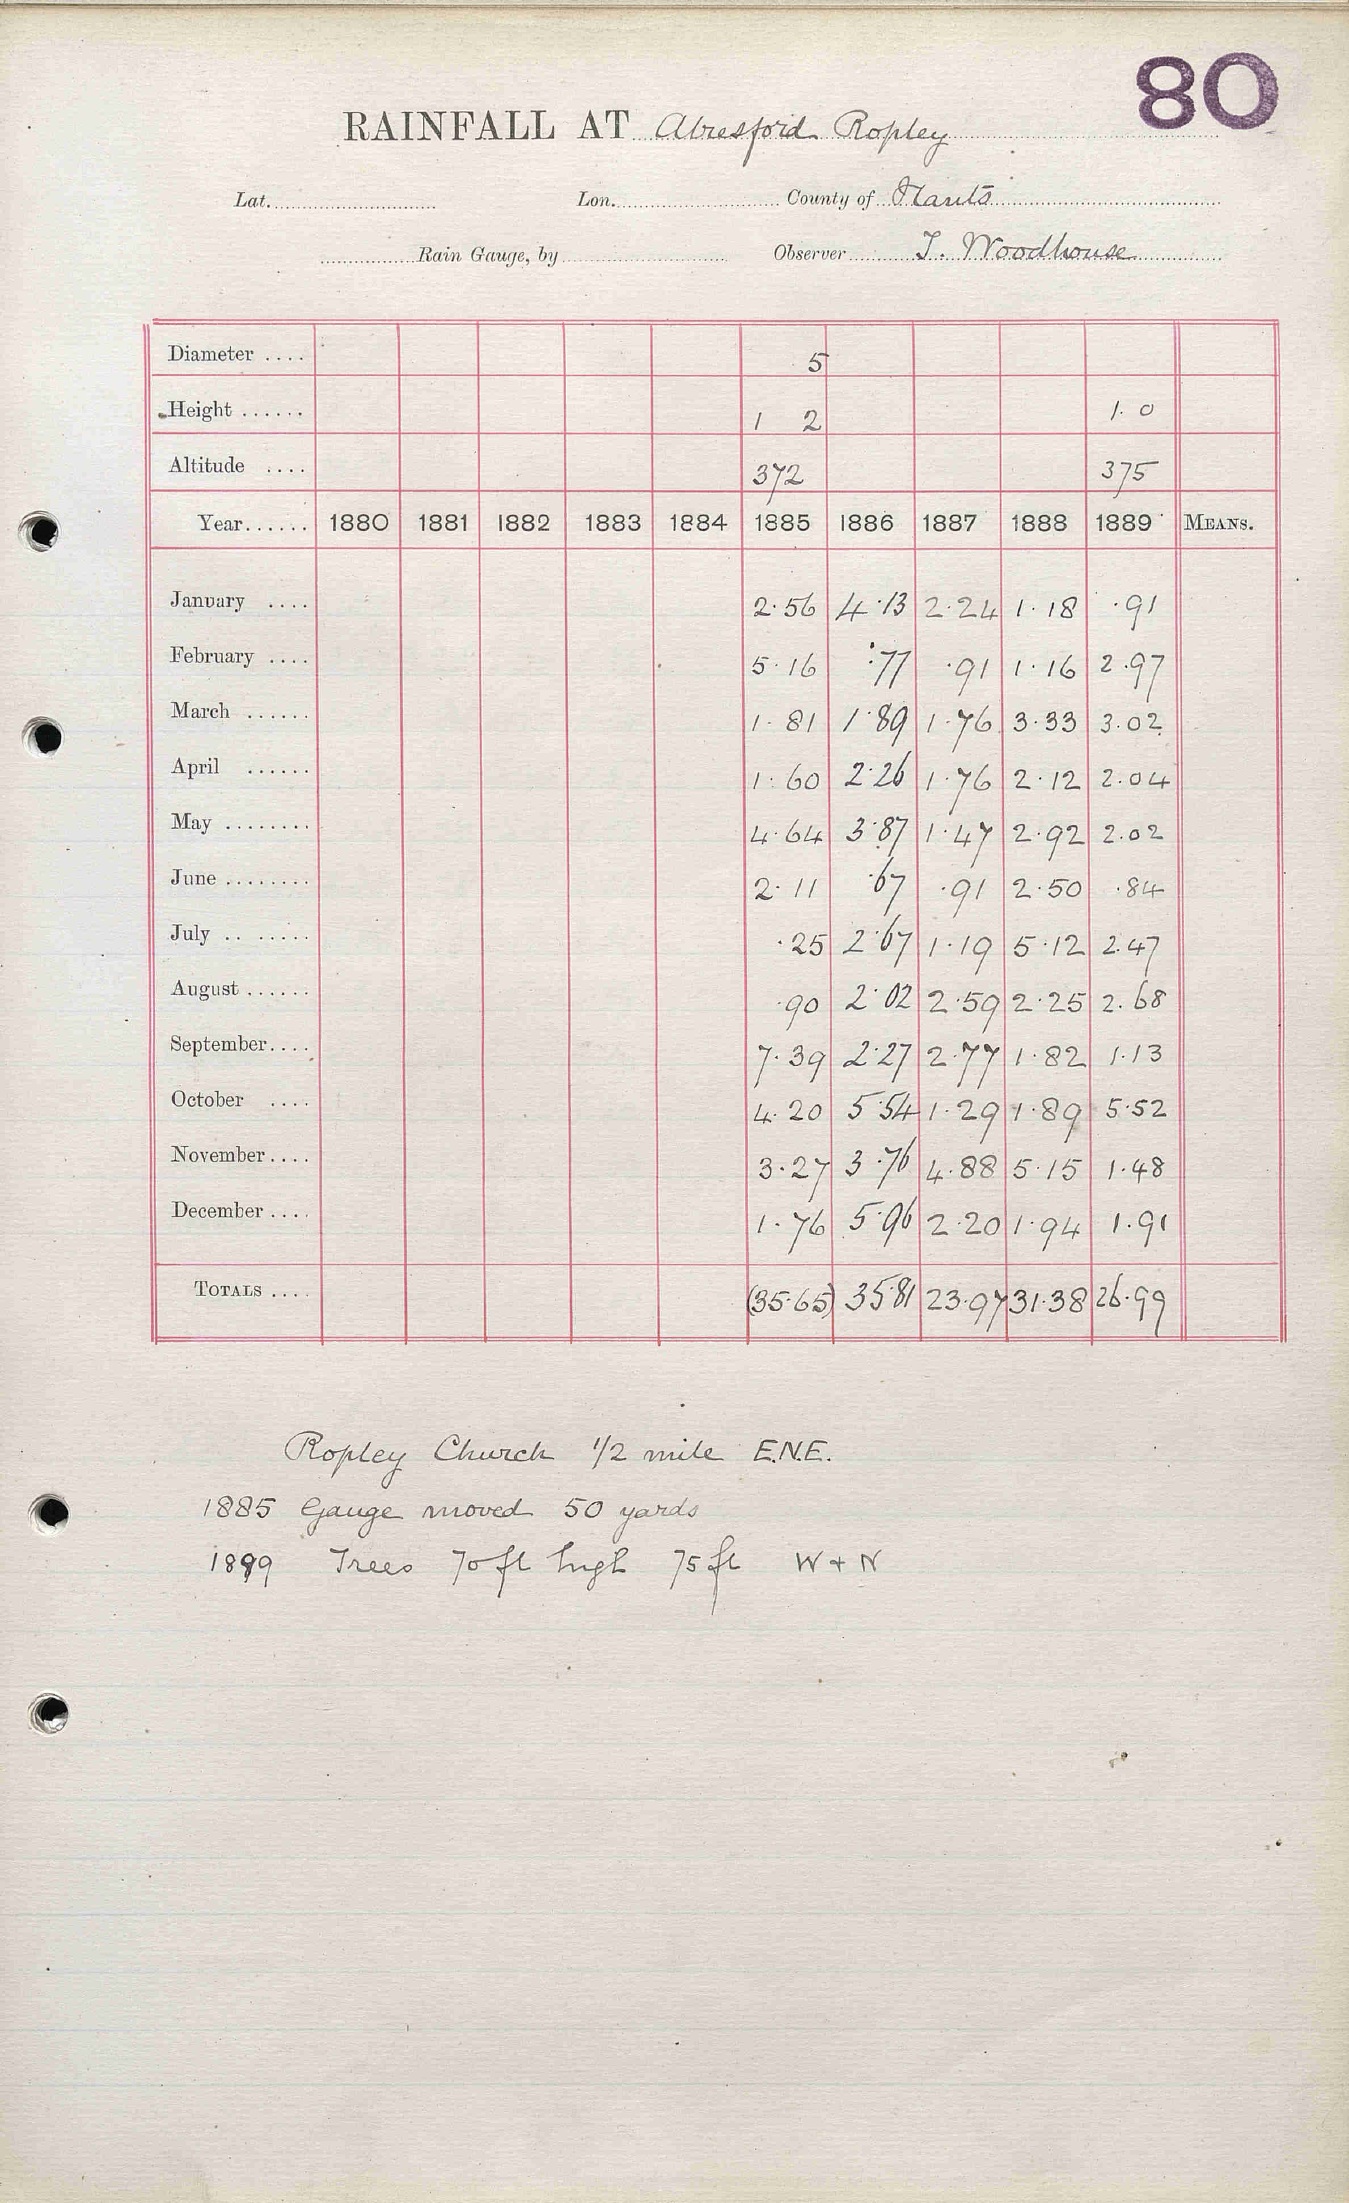 80
RAINFALL AT Alresford Ropley
Lat. Lon. County of Hants
Rain Gauge, by Observer T. Woodhouse
Diameter .... 5
Height ...... 1 2 1.0
Altitude .... 372 375
Year ...... 1880 1881 1882 1883 1884 1885 1886 1887 1888 1889 MEANS.
January .... 2.56 4.13 2.24 1.18 .91
February .... 5.16 .77 .91 1.16 2.97
March ...... 1.81 1.89 1.76 3.33 3.02
April ...... 1.60 2.26 1.76 2.12 2.04
May ........ 4.64 3.87 1.47 2.92 2.02
June ........ 2.11 .67 .91 2.50 .84
July .. ..... .25 2.67 1.19 5.12 2.47
August ...... .90 2.02 2.59 2.25 2.68
September.... 7.39 2.27 2.77 1.82 1.13
October .... 4.20 5.54 1.29 1.89 5.52
November.... 3.27 3.76 4.88 5.15 1.48
December .... 1.76 5.96 2.20 1.94 1.91
TOTALS .... (35.65) 35.81 23.97 31.38 26.99
Ropley Church 1/2 mile E.N.E.
1885 Gauge moved 50 yards
Trees 70 ft high 75 ft W + N